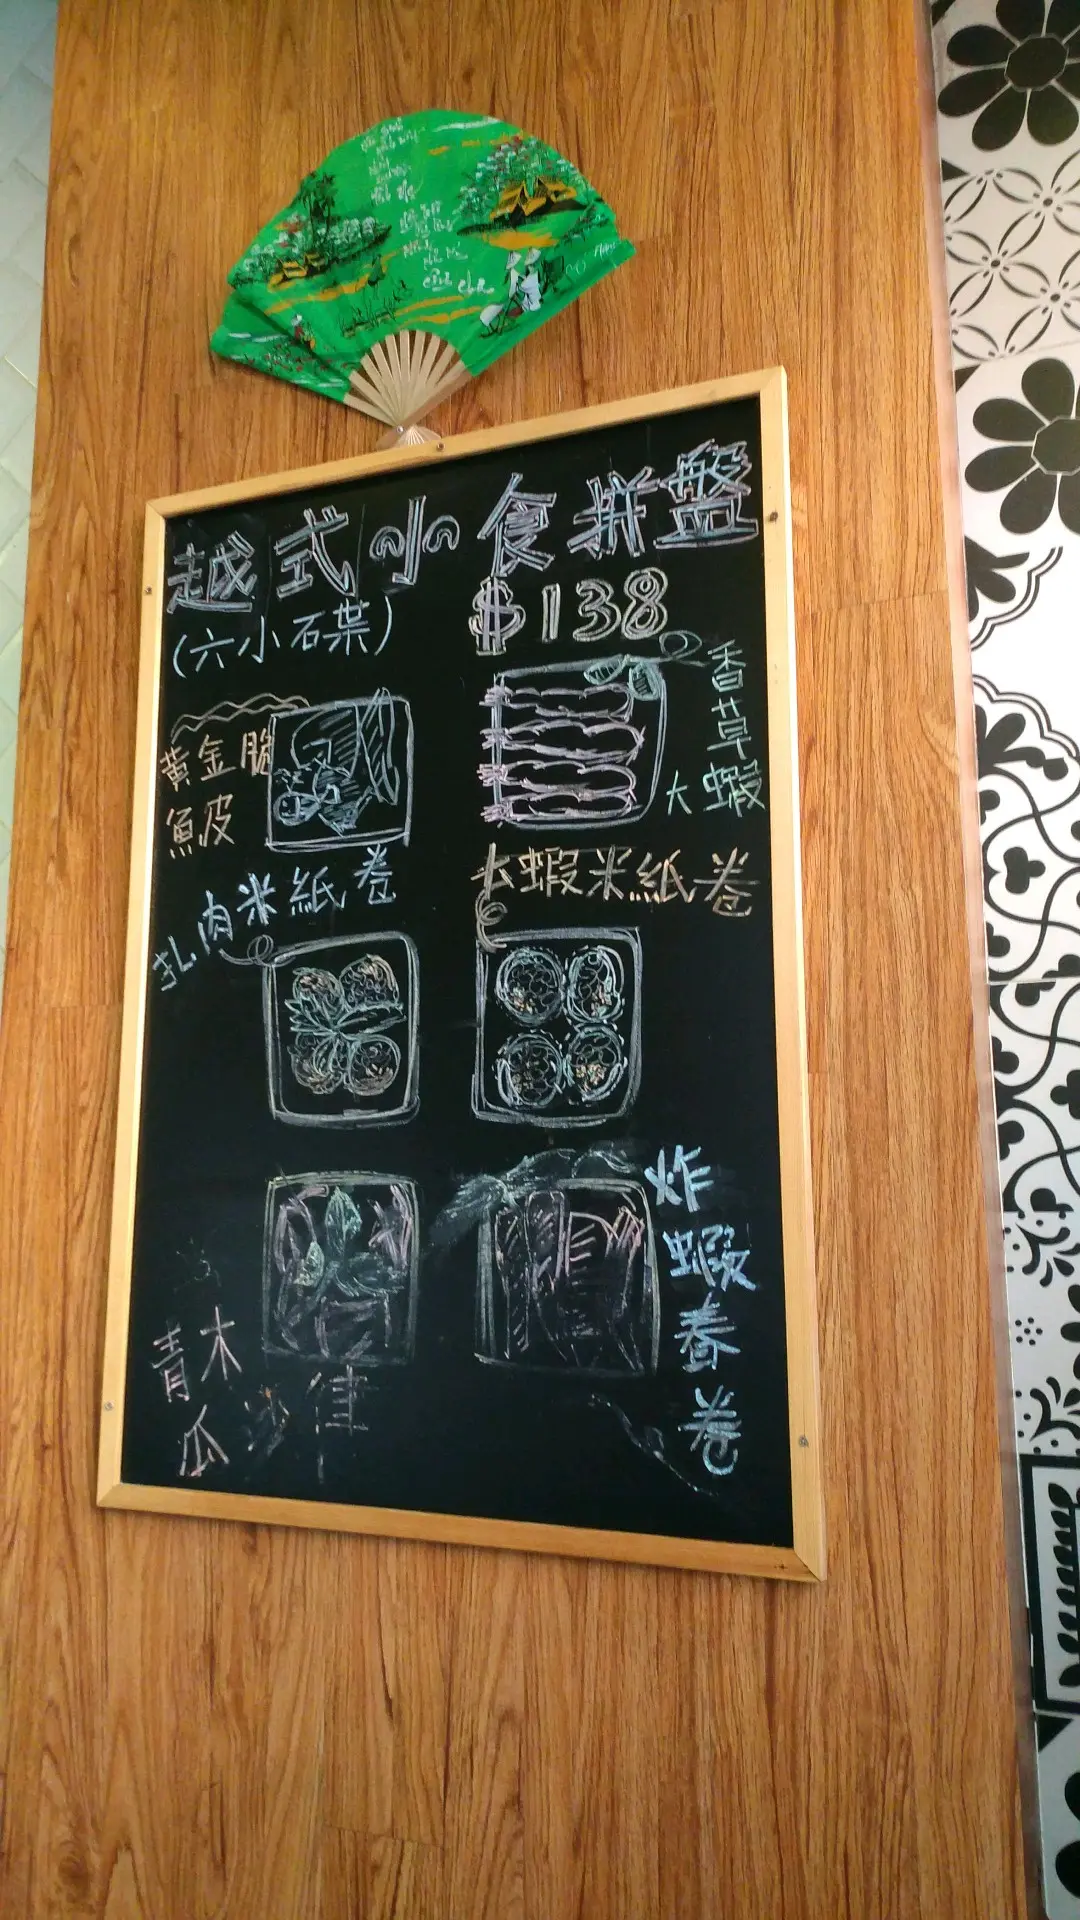 越式小食拼盤
(六小石葉)
$138
黃金脆
魚皮
香草
大蝦
扎肉米紙卷
大蝦米紙卷
青木
瓜沙律
炸蝦春卷